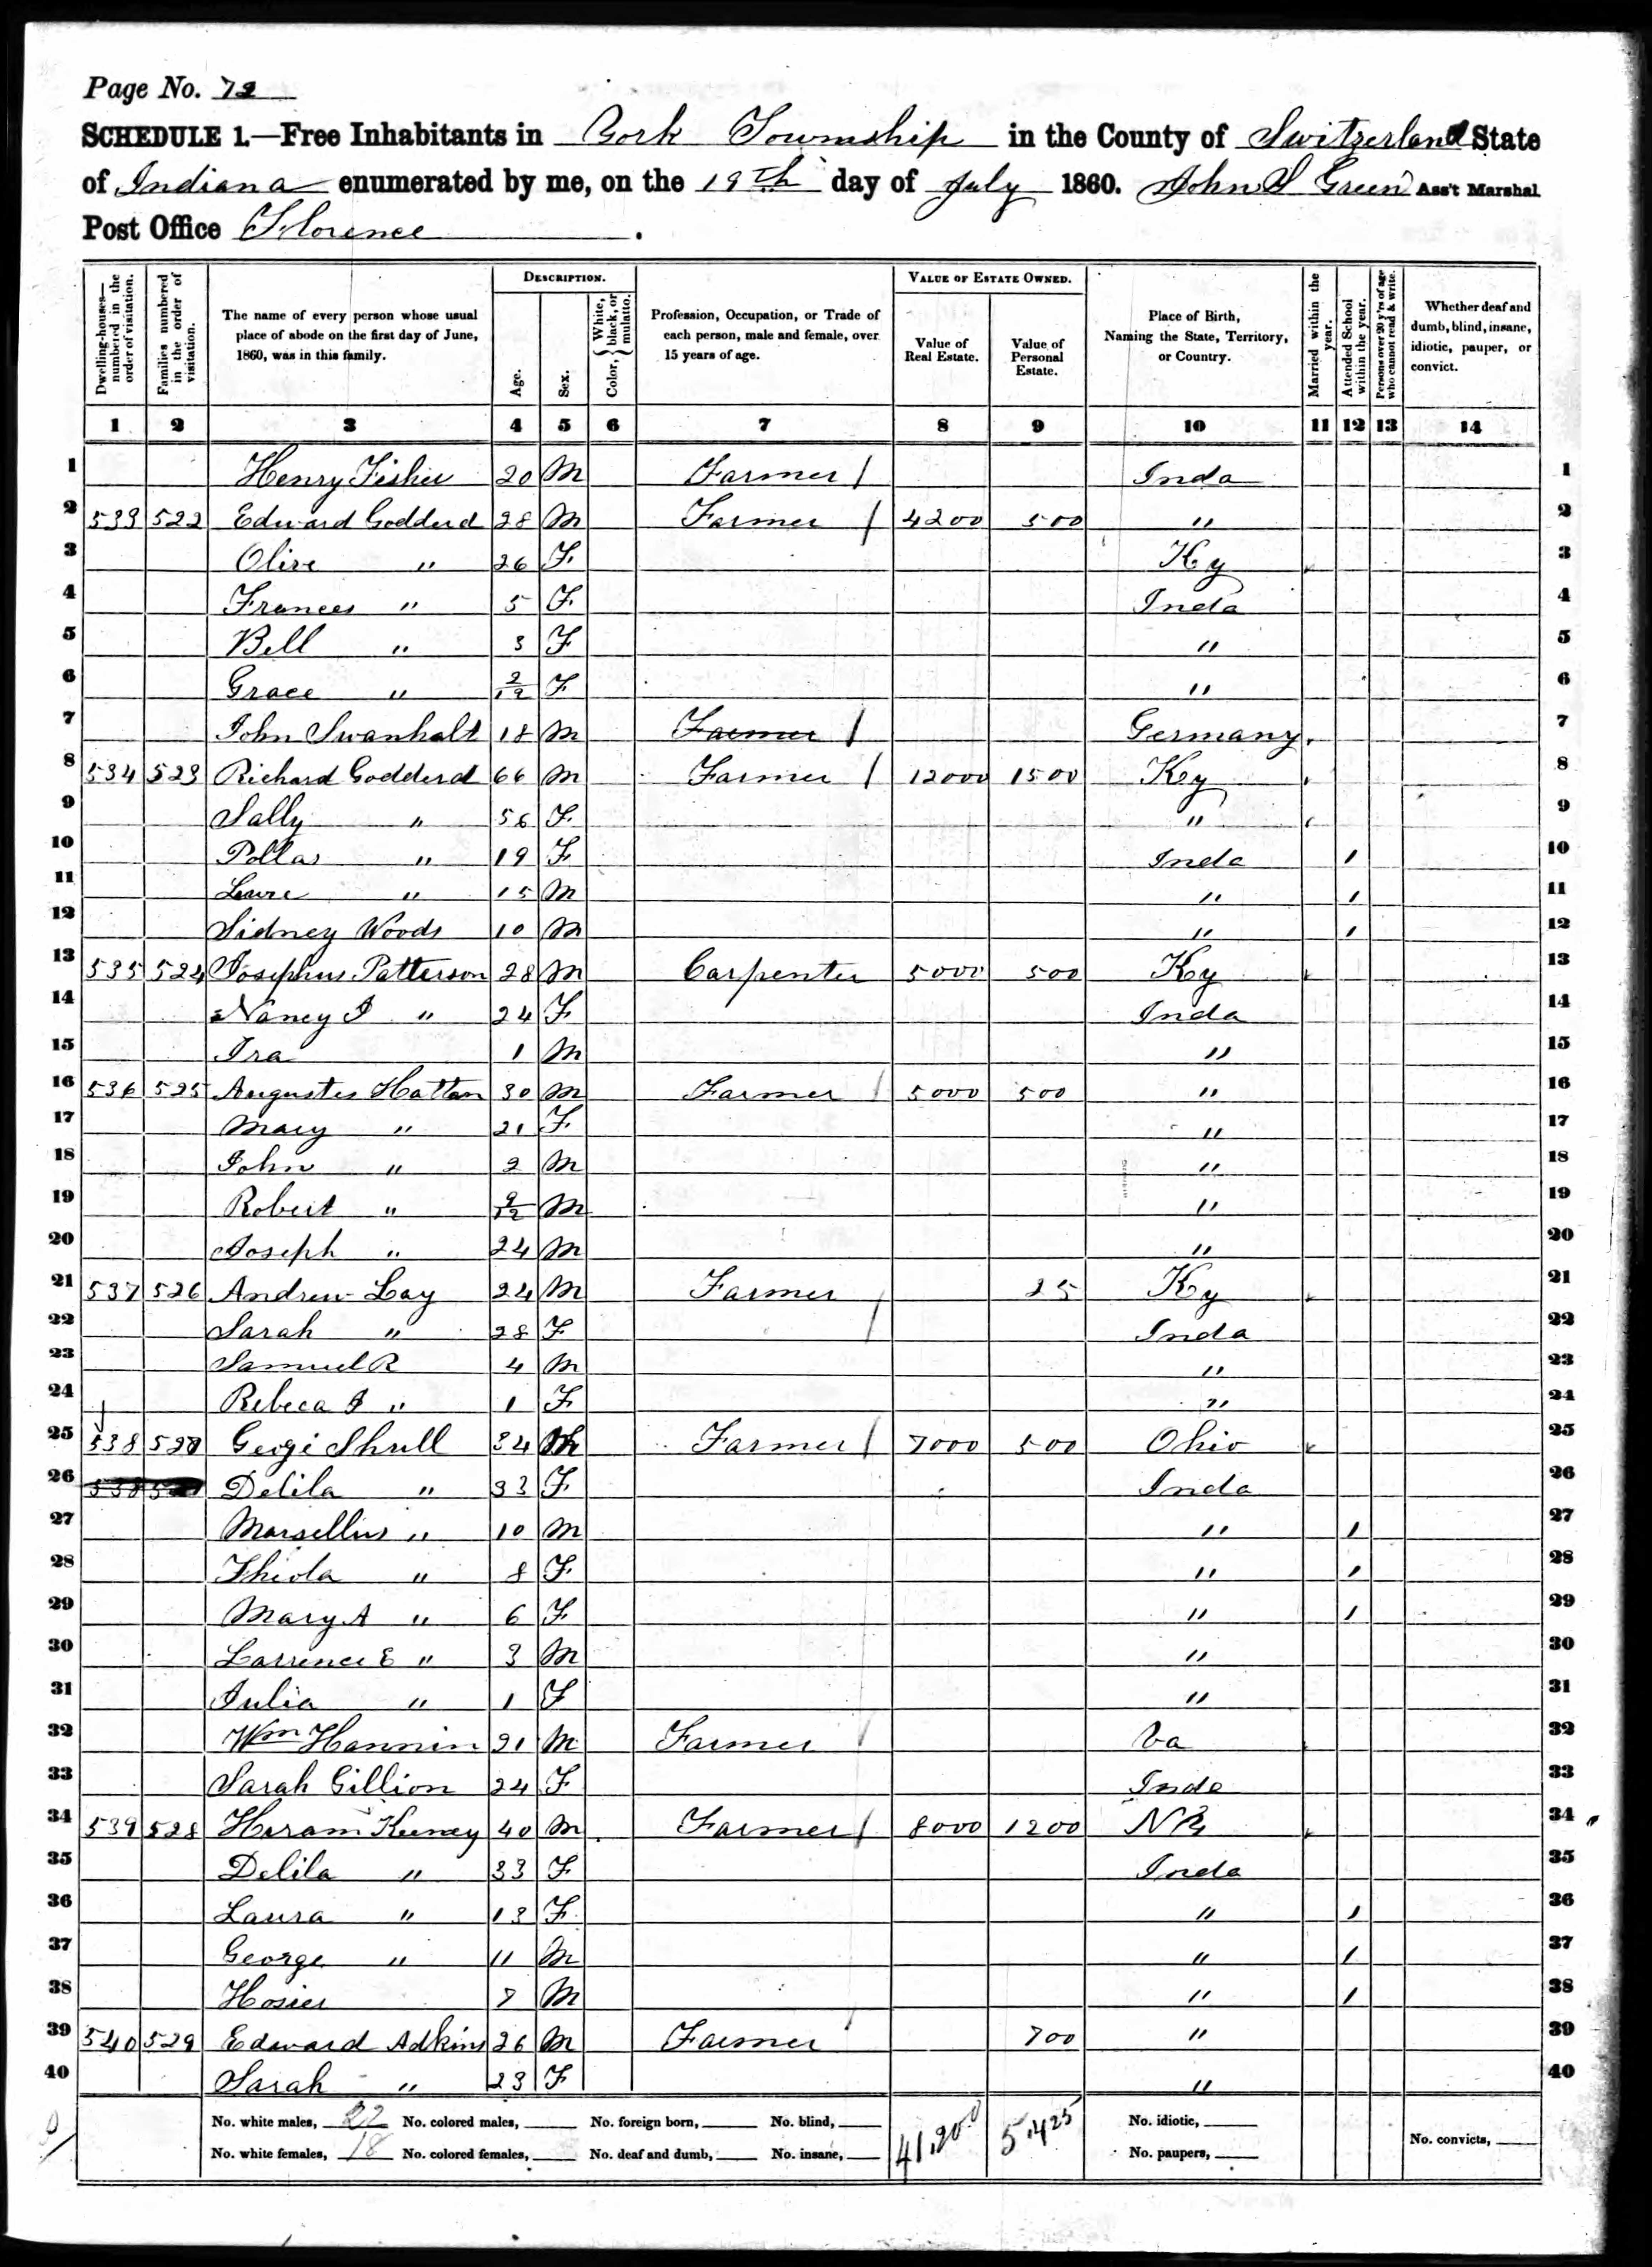 Page No. 72
SCHEDULE 1.—Free Inhabitants in York Township in the County of Switzerland State
of Indiana enumerated by me, on the 19th day of July 1860. John S Green Ass't Marshal
Post Office Florence.
Dwelling-houses—numbered in the order of visitation. Families numbered in the order of visitation. The name of every person whose usual place of abode on the first day of June, 1860, was in this family. DESCRIPTION. Age. Sex. Color, { White, black, or mulatto. Profession, Occupation, or Trade of each person, male and female, over 15 years of age. VALUE OF ESTATE OWNED. Value of Real Estate. Value of Personal Estate. Place of Birth, Naming the State, Territory, or Country. Married within the year. Attended School within the year. Persons over 20 y'rs of age who cannot read & write. Whether deaf and dumb, blind, insane, idiotic, pauper, or convict.
1 2 3 4 5 6 7 8 9 10 11 12 13 14
1 Henry Fisher 20 M Farmer / Inda 1
2 533 522 Edward Godderd 28 M Farmer / 4200 500 " 2
3 Olive " 26 F Ky 3
4 Frances " 5 F Inda 4
5 Bell " 3 F " 5
6 Grace " 2/12 F " 6
7 John Swanhalt 18 M Farmer / Germany 7
8 534 523 Richard Godderd 66 M Farmer / 12000 1500 Ky 8
9 Sally " 56 F " 9
10 " 19 F Inda / 10
11 " 15 M " / 11
12 Sidney Woods 10 M " / 12
13 535 524 Josephus Patterson 28 M Carpenter 5000 500 Ky 13
14 Nancy J " 24 F Inda 14
15 Ira 1 M " 15
16 536 525 Augustes Hatton 30 M Farmer / 5000 500 " 16
17 Mary " 21 F " 17
18 John " 2 M " 18
19 Robert " 9/12 M " 19
20 Joseph " 24 M " 20
21 537 526 Andrew Lay 24 M Farmer / 25 Ky 21
22 Sarah " 28 F Inda 22
23 Samuel R 4 M " 23
24 Rebeca J " 1 F " 24
25 538 527 Georgi Shull 34 M Farmer / 7000 500 Ohio 25
26 538 Delila " 33 F Inda 26
27 Marsellus " 10 M " / 27
28 Thiola " 8 F " / 28
29 Mary A " 6 F " / 29
30 Larrence E " 3 M " 30
31 Julia " 1 F " 31
32 Wm Hannin 21 M Farmer / Va 32
33 Sarah Gillion 24 F Inda 33
34 539 528 Hiram Keeney 40 M Farmer / 8000 1200 34
35 Delila " 33 F Inda 35
36 Laura " 13 F " / 36
37 George " 11 M " / 37
38 Hosier 7 M " / 38
39 540 529 Edward Adkins 26 M Farmer / 700 " 39
40 Sarah " 23 F " 40
No. white males, 22 No. colored males, No. foreign born, No. blind, 41,200 5,425 No. idiotic,
No. white females, 18 No. colored females, No. deaf and dumb, No. insane, No. paupers, No. convicts,